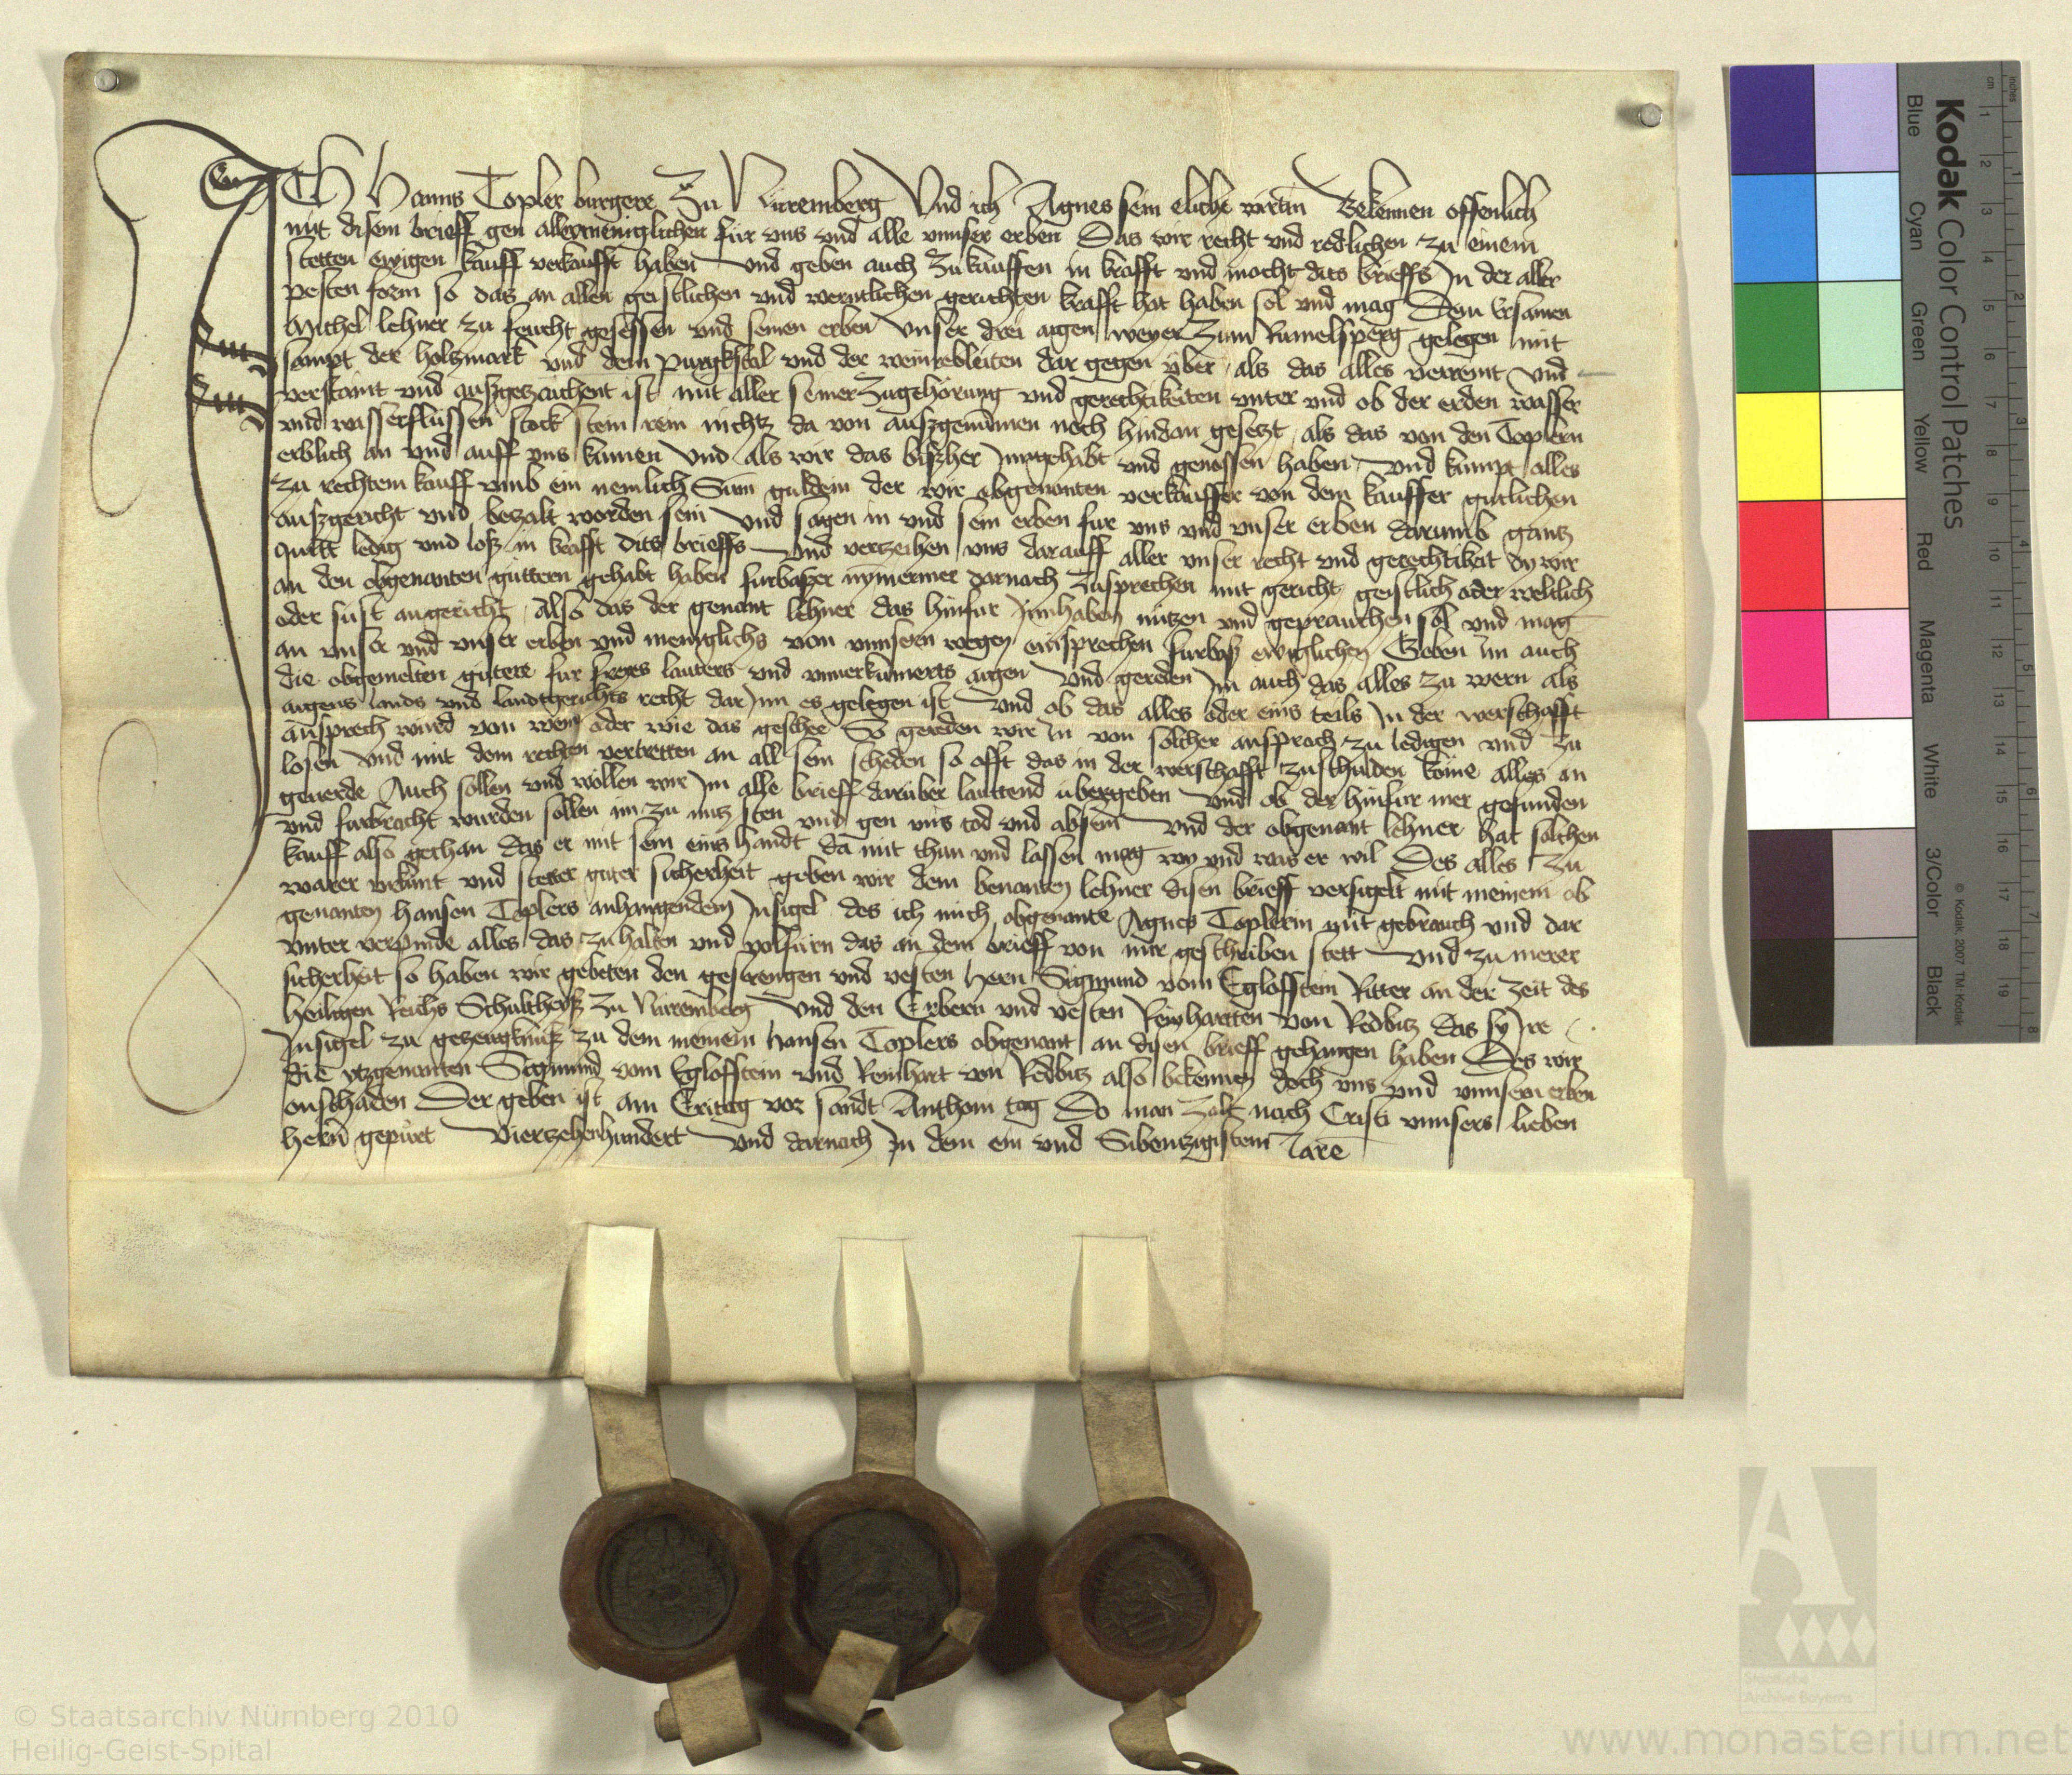 ICH Hanns Topler burgere Zu Nuremberg Und ich Agnes sein eliche wirtin Bekennen offenlich
mit disem brieff gen allermeniglichen fur uns und alle unnser erben Das wir recht und redlichen zu einem
stetten ewigen kauff verkaufft haben und geben auch zu kauffen in krafft und macht dits brieffs In der aller
pesten form so das an allen geistlichen und werntlichen gerichten krafft hat haben sol und mag Dem Ersamen
Michel lehner zu feucht gesessen und seinen erben Unser drei aigen weyer zum Rumelsperg gelegen mit
sampt der holtzmark und dem purgkstal und der weinrebleiten dar gegen uber als das alles verreint und
verstaint und auszgezaichent ist mit aller seiner zugehorung und gerechtikeiten unter und ob der erden wasser
und wasserflussen stock stein rein nichtz da von auszgenumen noch hindan gesetzt als das von den Toplern
erblich an und auff uns kumen Und als wir das biszher Inngehabt und genossen haben Und kumpt alles
zu rechtem kauff umb ein nemlich Sum guldein der wir obgenanten verkauffer von dem kauffer gutlichen
auszgericht und bezalt worden sein Und sagen in und sein erben fur uns und unser erben darumb gantz
quitt ledig und losz in krafft dits brieffs Und verzeihen uns darauff aller unser recht und gerechtikeit dy wir
an den obgenanten guttern gehabt haben furbaszer nymermer darnach zusprechen mit gericht geistlich oder weltlich
oder sust angericht Also das der genant lehner das hinfur Innhaben nutzen und geprauchen sol und mag
an unser und unser erben und meniglichs von unnsern wegen einsprechen furbasz ewiglichen Geben im auch
die obgemelten gutere fur freyes lauters und unverkumerts aigen Und gereden Im auch das alles zu wern als
aigens lands und landtgerichts recht dar Inn es gelegen ist Und ob das alles oder eins teils In der werschafft
ansprech wurd von wem oder wie das geschee So gereden wir In von solcher ansprach zu ledigen und zu
losen Und mit dem rechten vertretten an all sein scheden so offt das in der werschafft zuschulden kome alles an
geuerde Auch sollen und wollen wir Im alle brieff daruber lauttend ubergeben Und ob der hinfur mer gefunden
und furbracht wurden sollen im zu nutz sten und gen uns tod und absein Und der obgenant lehner hat solchen
kauff also gethan das er mit sein eins handt da mit thun und lassen mag wy und was er wil Des alles zu
warer urkunt und stetter guter sicherheit geben wir dem benanten lehner disen brieff versigelt mit meinem ob
genanten Hansen Toplers anhangendem Insigel des ich mich obgenante Agnes Toplerin mit gebrauch und dar
unter verpinde alles das zu halten und volfurn das an dem brieff von mir geschriben stett Und zu merer
sicherheit so haben wir gebeten den gestrengen und vesten Hern Sigmund vom Eglofstein Ritter an der zeit des
Heiligen Reichs Schultheisz zu Nuremberg Und den Erbern und vesten Reinhartten von Redbitz das sy Ire
Insigel zu gezeugknusz zu dem meinem Hansen Toplers obgenant an disen brieff gehangen haben Des wir
die ytzgenanten Sigmund vom Eglofstein und Reinhart von Redbitz also bekennen doch uns und unnsern erben
onschaden Der geben ist am Eritag vor sandt Anthoni tag Do man zalt nach Cristi unnsers lieben
Hern gepurt Vierzehenhundert Und darnach In dem ein und Sibentzigistem Iare
Kodak Color Control Patches
Blue Cyan Green Yellow Red Magenta White 3/Color Black
© Kodak, 2007 TM: Kodak
cm 1 2 3 4 5 6 7 8 9 10 11 12 13 14 15 16 17 18 19
inches 1 2 3 4 5 6 7 8
Staatliche
Archive Bayerns
© Staatsarchiv Nürnberg 2010
Heilig-Geist-Spital
www.monasterium.net